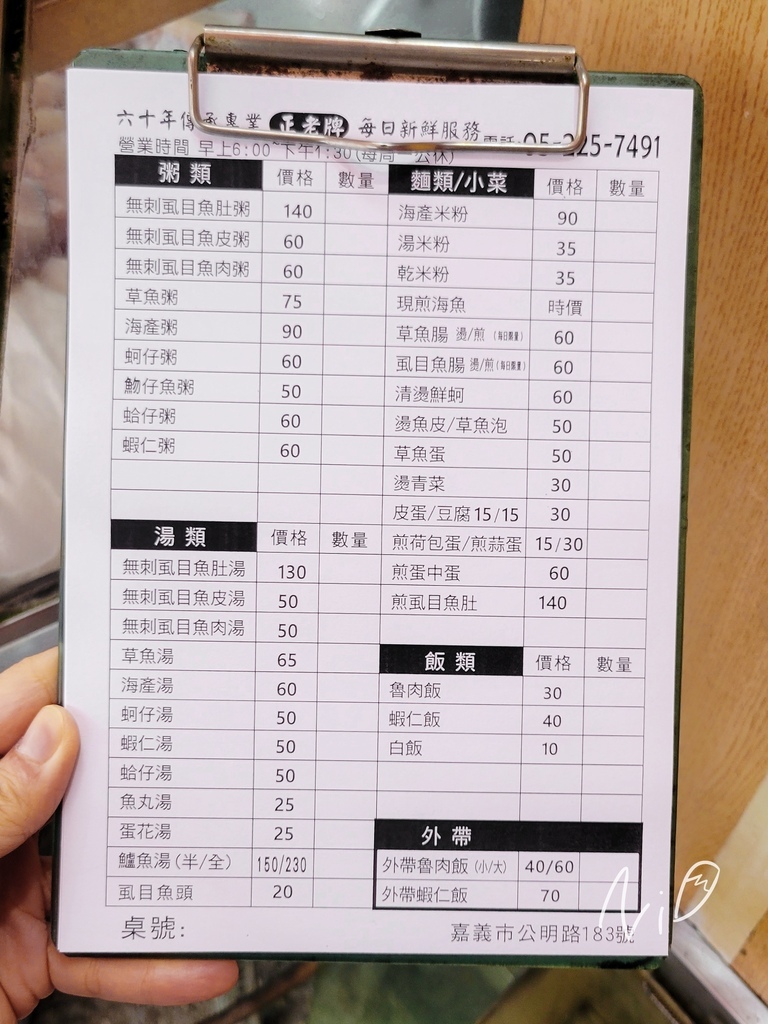 六十年傳承專業 正老牌 每日新鮮服務
營業時間 早上6:00~下午1:30(每周一公休) 電話:05-225-7491
粥類 價格 數量
無刺虱目魚肚粥 140
無刺虱目魚皮粥 60
無刺虱目魚肉粥 60
草魚粥 75
海產粥 90
蚵仔粥 60
魩仔魚粥 50
蛤仔粥 60
蝦仁粥 60
湯類 價格 數量
無刺虱目魚肚湯 130
無刺虱目魚皮湯 50
無刺虱目魚肉湯 50
草魚湯 65
海產湯 60
蚵仔湯 50
蝦仁湯 50
蛤仔湯 50
魚丸湯 25
蛋花湯 25
鱸魚湯(半/全) 150/230
虱目魚頭 20
麵類/小菜 價格 數量
海產米粉 90
湯米粉 35
乾米粉 35
現煎海魚 時價
草魚腸 燙/煎 (每日限量) 60
虱目魚腸 燙/煎 (每日限量) 60
清燙鮮蚵 60
燙魚皮/草魚泡 50
草魚蛋 50
燙青菜 30
皮蛋/豆腐 15/15 30
煎荷包蛋/煎蒜蛋 15/30
煎蛋中蛋 60
煎虱目魚肚 140
飯類 價格 數量
魯肉飯 30
蝦仁飯 40
白飯 10
外帶
外帶魯肉飯 (小/大) 40/60
外帶蝦仁飯 70
桌號:
嘉義市公明路183號